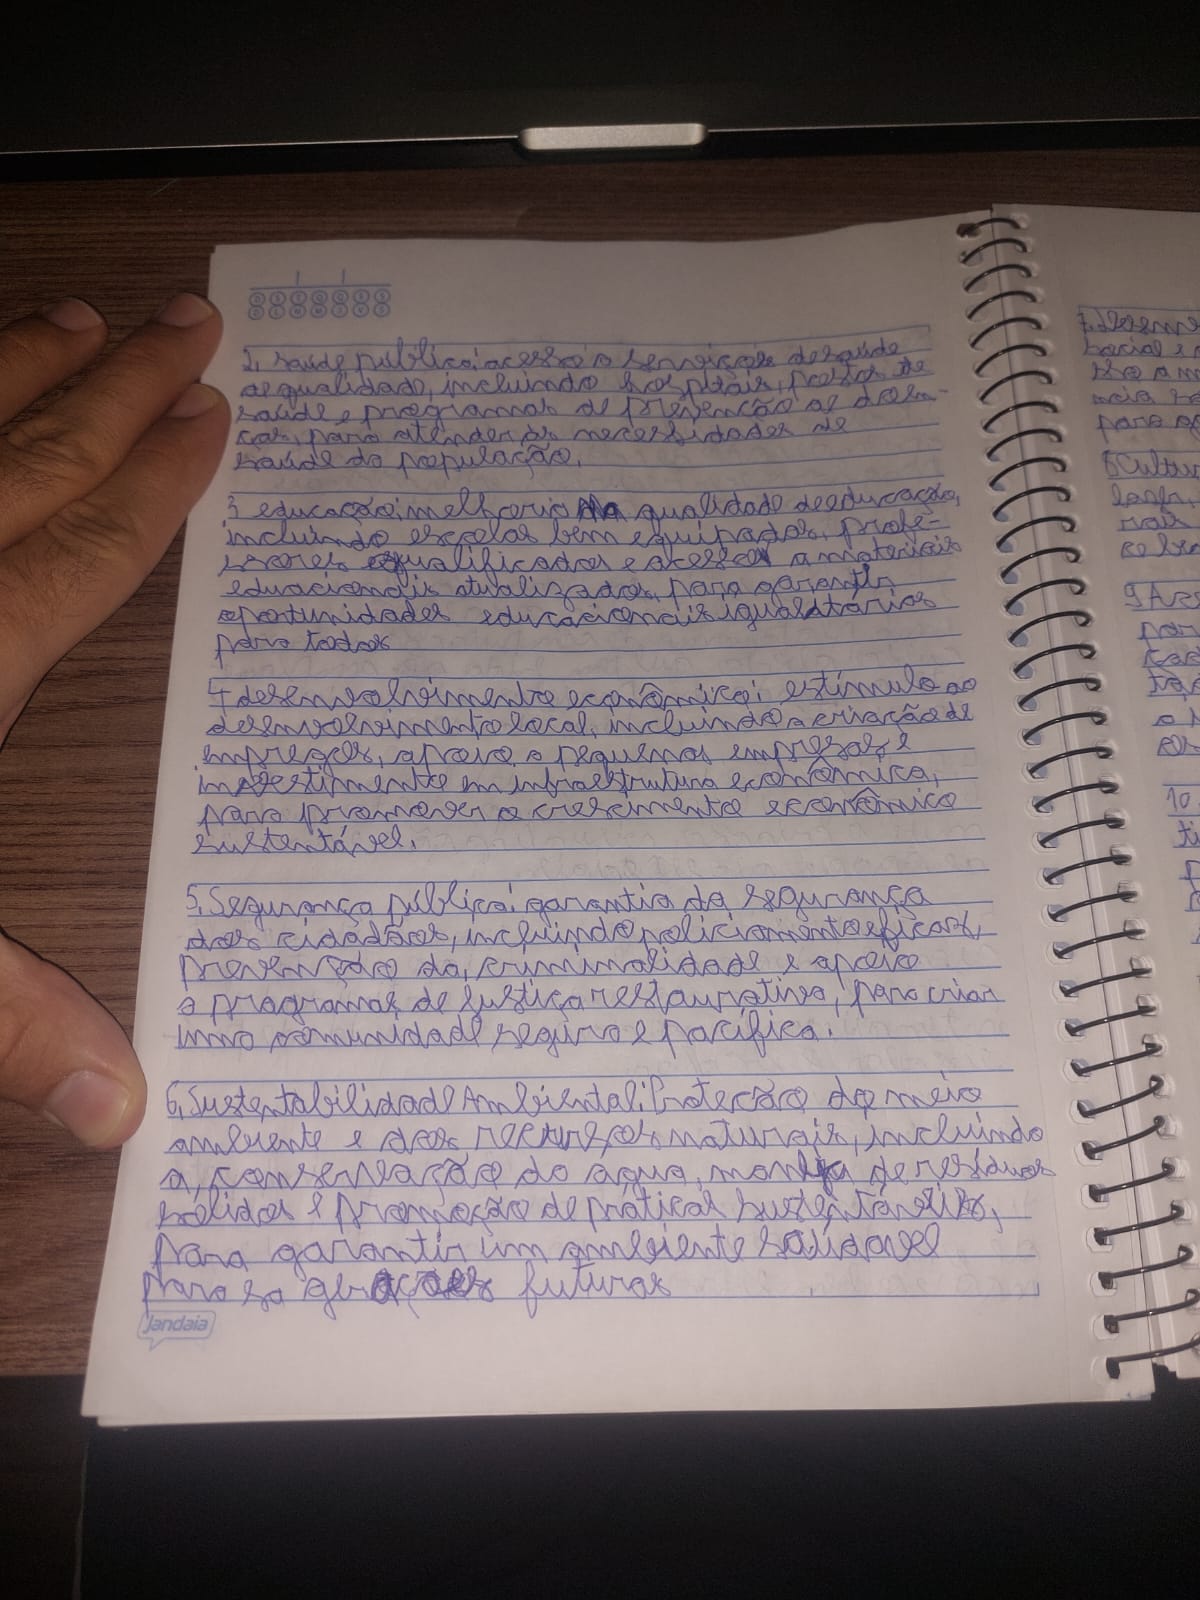 D S T Q Q S S
D L M M J V S
2, saúde pública: acesso a serviços de saúde
de qualidade, incluindo hospitais, postos de
saúde e programas de prevenção de doen-
ças, para atender às necessidades de
saúde da população.
3 educação: melhoria na qualidade de educação,
incluindo escolas bem equipadas, profe-
ssores qualificados e acesso a materiais
educacionais atualizados, para garantir
oportunidades educacionais igualitárias
para todos
4 desenvolvimento econômico: estímulo ao
desenvolvimento local, incluindo a criação de
empregos, apoio a pequenas empresas e
investimento em infraestrutura econômica,
para promover o crescimento econômico
sustentável.
5, Segurança pública: garantia da segurança
dos cidadãos, incluindo policiamento eficaz,
prevenção da criminalidade e apoio
a programas de justiça restaurativa, para criar
uma comunidade segura e pacífica.
6, Sustentabilidade Ambiental: Proteção do meio
ambiente e dos recursos naturais, incluindo
a, conservação da água, de resíduos
solidos e promoção de práticas sustentáveis,
para garantir um ambiente saudavel
para gerações futuras
Jandaia
7, Desenv
Social e
para
8 Cultur
rais
9 Ace
por
10